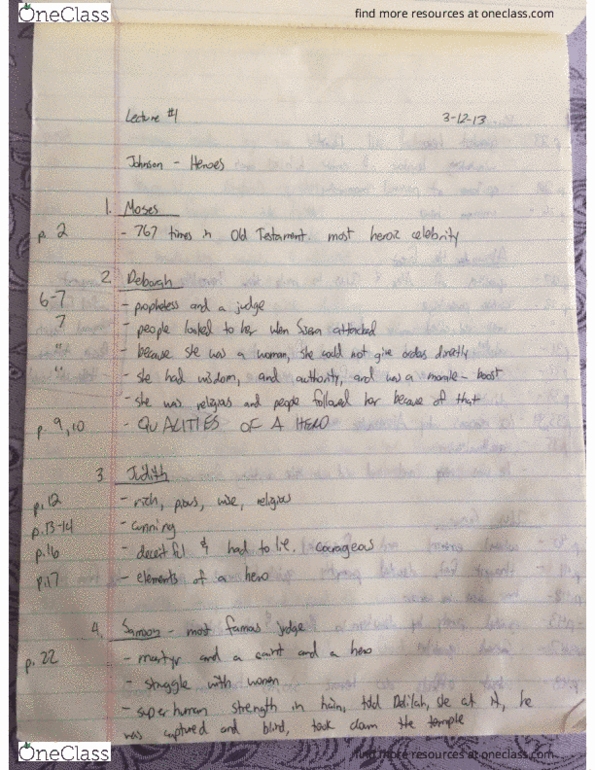 OneClass
find more resources at oneclass.com
Lecture #1 3-12-13
Johnson - Heroes
1. Moses
p. 2 - 767 times in Old Testament. most heroic celebrity
2. Deborah
6-7 - prophetess and a judge
7 - people looked to her when Sisera attacked
" - because she was a woman, she could not give orders directly
" - she had wisdom, and authority, and was a morale-boost
- she was religious and people followed her because of that
p. 9,10 - QUALITIES OF A HERO
3. Judith
p.12 - rich, pious, wise, religious
p.13-14 - cunning
p.16 - deceitful & had to lie. courageous
p.17 - elements of a hero
4. Samson - most famous judge
p.22 - martyr and a saint and a hero
- struggle with women
- superhuman strength in hair, told Delilah, she cut it, he
was captured and blind, took down the temple
OneClass
find more resources at oneclass.com